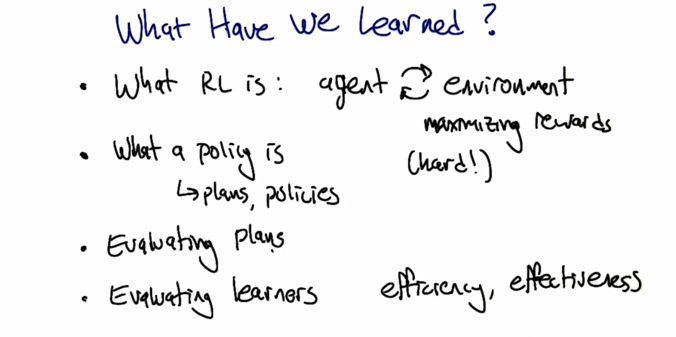 What Have We Learned?
• What RL is: agent ⇄ environment
maximizing rewards
(hard!)
• What a policy is
↳ plans, policies
• Evaluating plans
• Evaluating learners efficiency, effectiveness